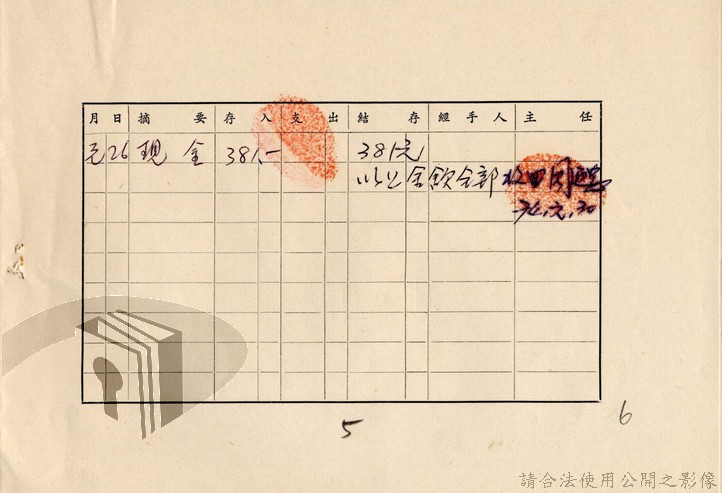 月 日 摘 要 存 入 支 出 結 存 經 手 人 主 任
元 26 現 金 381.- 381元
以上金飲全部收回
元.30
5
6
請合法使用公開之影像